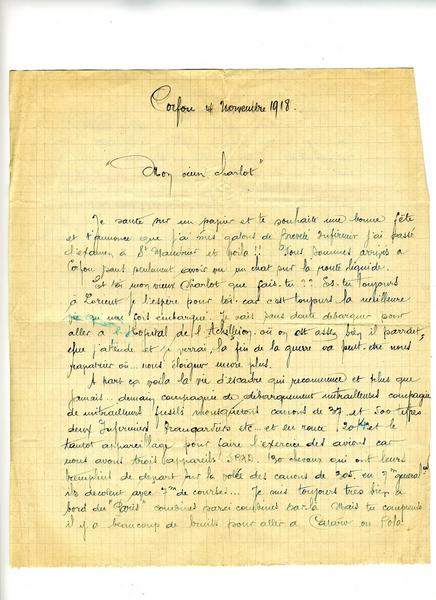 Corfou 4 Novembre 1918.
"Mon vieux Charlot"
Je saute sur un papier et te souhaite une bonne fête
et t'annonce que j'ai mes galons de Breveté Infirmier j'ai passé
d'examen à St Mandrier et voila!! Nous sommes arrivés à
Corfou sans seulement avoir vu un chat sur la route liquide.
Et toi mon vieux Charlot que fais-tu?? Es-tu toujours
à Lorient je l'espère pour toi car c'est toujours la meilleure
vie qu'une fois embarqué. Je vais sans doute débarquer pour
aller à l'Hôpital de l'Achilleion où on est assez bien il parrait,
que j'attende et je verrai, la fin de la guerre va peut-être nous
rapatrier où... nous éloigner encore plus.
A part ça voila la vie d'escadre qui recommence et plus que
jamais... demain compagnie de débarquement mitrailleuses compagnie
de mitrailleurs fusils mousquetons canons de 37 et 500 types
deux Infirmiers Brancardiers etc... et en route 20 Km et le
tantot appareillage pour faire l'exercice des avions car
nous avons trois appareils SPAD. 130 chevaux qui ont leurs
de depart sur la volée des canons de 305. en 7m
ils décolent avec 7m de courses... Je suis toujours très bien à
bord du "Paris" combines parci combines parla Mais tu comprends
il y a beaucoup de bruits pour aller à Cataro ou Pola